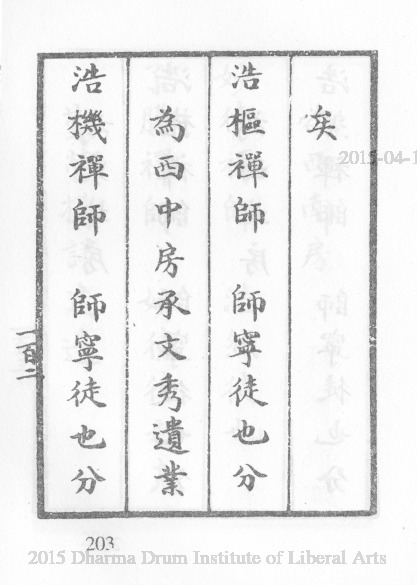 矣
浩樞禪師　師寧徒也分
為西中房承文秀遺業
浩機禪師　師寧徒也分
一百二
203
2015-04-1
2015 Dharma Drum Institute of Liberal Arts